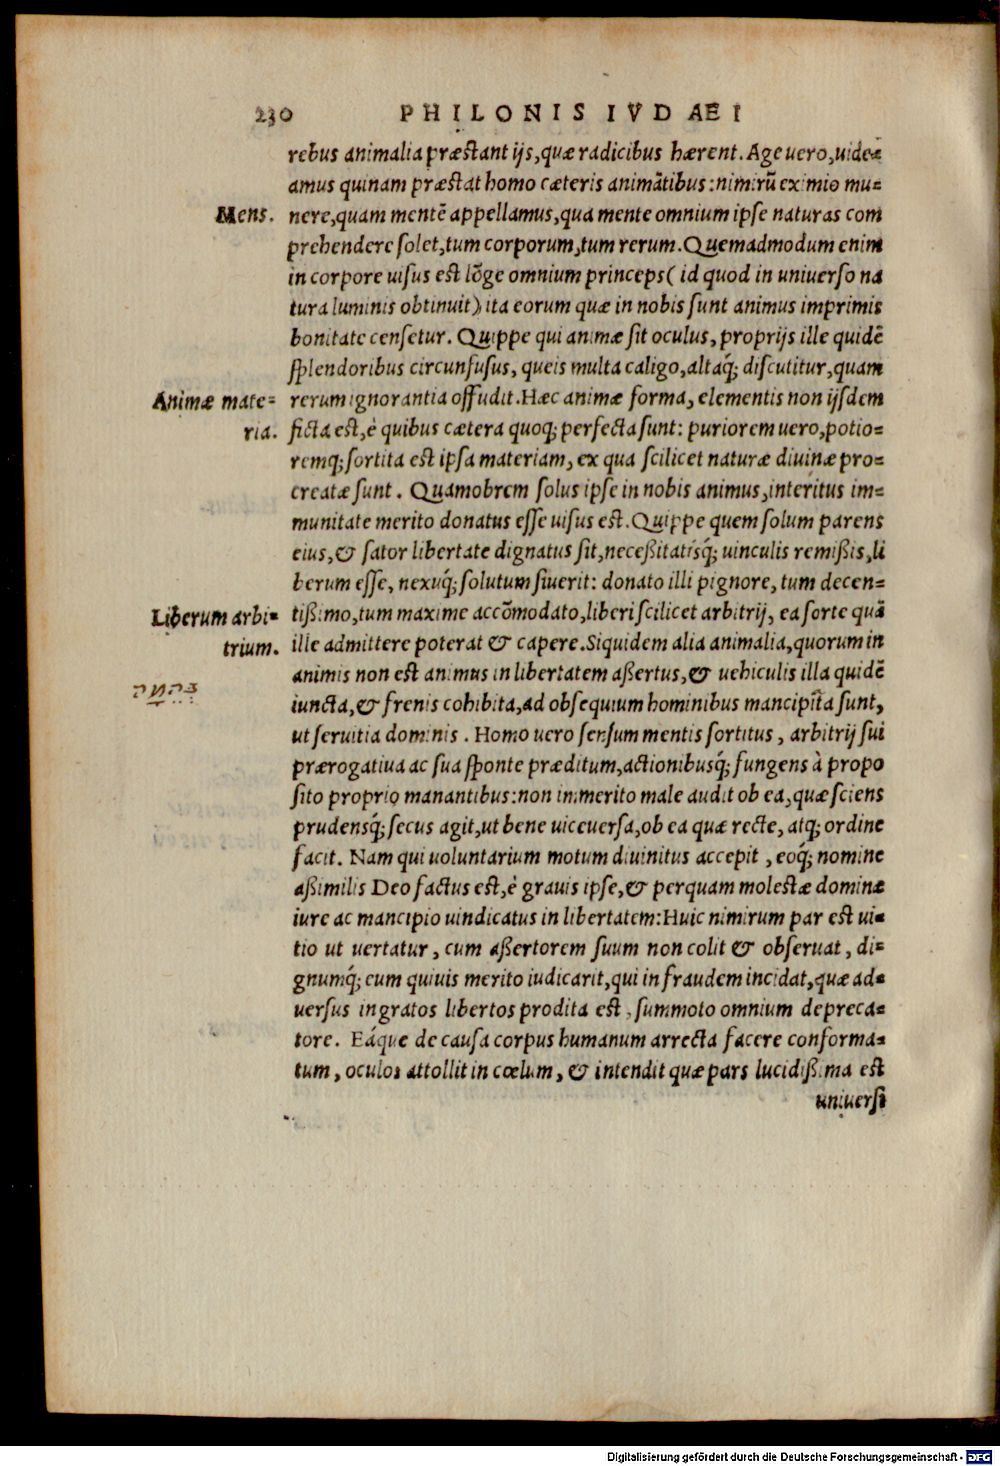 230 PHILONIS IVDAEI
rebus animalia præstant ijs,quæ radicibus hærent. Age uero,uide-
amus quinam præstat homo cæteris animãtibus:nimirũ eximio mu-
Mens. nere,quam mentẽ appellamus,qua mente omnium ipse naturas com
prehendere solet,tum corporum,tum rerum. Quemadmodum enim
in corpore uisus est lõge omnium princeps( id quod in uniuerso na
tura luminis obtinuit) ita eorum quæ in nobis sunt animus imprimis
bonitate censetur. Quippe qui animæ sit oculus, proprijs ille quidẽ
splendoribus circunfusus, queis multa caligo,altaq́; discutitur,quam
Animæ mate- rerum ignorantia offudit.Hæc animæ forma, elementis non ijsdem
ria. ficta est,è quibus cætera quoq; perfecta sunt: puriorem uero,potio-
remq; sortita est ipsa materiam, ex qua scilicet naturæ diuinæ pro-
creatæ sunt . Quamobrem solus ipse in nobis animus,interitus im-
munitate merito donatus esse uisus est. Quippe quem solum parens
eius,& sator libertate dignatus sit,neceßitatísq́; uinculis remißis,li
berum esse, nexuq́; solutum siuerit: donato illi pignore, tum decen-
Liberum arbi- tißimo,tum maxime accõmodato,liberi scilicet arbitrij, ea sorte quã
trium. ille admittere poterat & capere.Siquidem alia animalia,quorum in
animis non est animus in libertatem aßertus,& uehiculis illa quidẽ
בְּהֵמָה iuncta,& frenis cohibita,ad obsequium hominibus mancipita sunt,
ut seruitia dominis . Homo uero sensum mentis sortitus , arbitrij sui
prærogatiua ac sua sponte præditum,actionibusq́; fungens à propo
sito proprio manantibus:non immerito male audit ob ea,quæ sciens
prudensq́; secus agit,ut bene uiceuersa,ob ea quæ recte, atq; ordine
facit. Nam qui uoluntarium motum diuinitus accepit , eoq́; nomine
aßimilis Deo factus est,è grauis ipse,& perquam molestæ dominæ
iure ac mancipio uindicatus in libertatem:Huic nimirum par est ui-
tio ut uertatur , cum aßertorem suum non colit & obseruat , di-
gnumq́; eum quiuis merito iudicarit,qui in fraudem incidat,quæ ad-
uersus ingratos libertos prodita est , summoto omnium depreca-
tore. Eáque de causa corpus humanum arrecta facere conforma-
tum , oculos attollit in cœlum, & intendit quæ pars lucidißima est
uniuersi
Digitalisierung gefördert durch die Deutsche Forschungsgemeinschaft - DFG